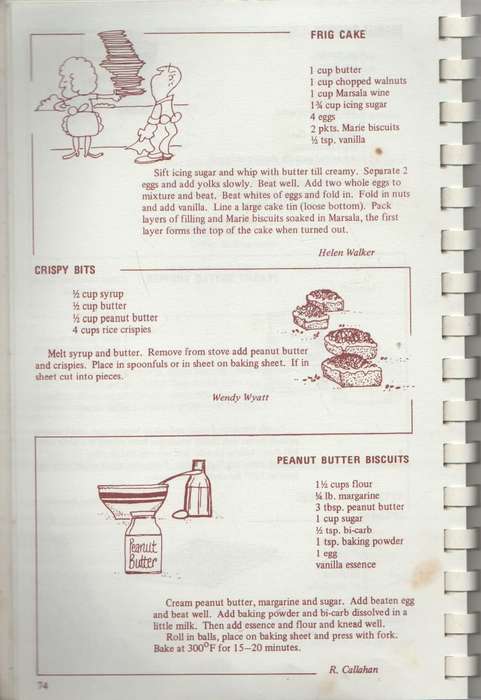 FRIG CAKE
1 cup butter
1 cup chopped walnuts
1 cup Marsala wine
1¾ cup icing sugar
4 eggs
2 pkts. Marie biscuits
½ tsp. vanilla
Sift icing sugar and whip with butter till creamy. Separate 2
eggs and add yolks slowly. Beat well. Add two whole eggs to
mixture and beat. Beat whites of eggs and fold in. Fold in nuts
and add vanilla. Line a large cake tin (loose bottom). Pack
layers of filling and Marie biscuits soaked in Marsala, the first
layer forms the top of the cake when turned out.
Helen Walker
CRISPY BITS
½ cup syrup
½ cup butter
½ cup peanut butter
4 cups rice crispies
Melt syrup and butter. Remove from stove add peanut butter
and crispies. Place in spoonfuls or in sheet on baking sheet. If in
sheet cut into pieces.
Wendy Wyatt
PEANUT BUTTER BISCUITS
1½ cups flour
¼ lb. margarine
3 tbsp. peanut butter
1 cup sugar
½ tsp. bi-carb
1 tsp. baking powder
1 egg
vanilla essence
Peanut
Butter
Cream peanut butter, margarine and sugar. Add beaten egg
and beat well. Add baking powder and bi-carb dissolved in a
little milk. Then add essence and flour and knead well.
Roll in balls, place on baking sheet and press with fork.
Bake at 300°F for 15–20 minutes.
R. Callahan
74